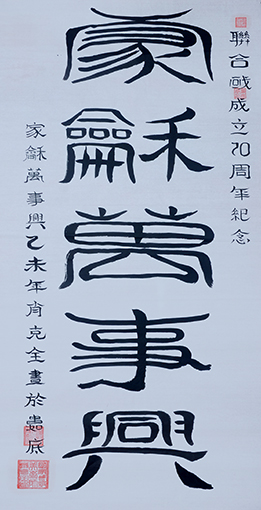 聯合國成立70周年紀念
家龢萬事興
家龢萬事興乙未年肖克全書於底